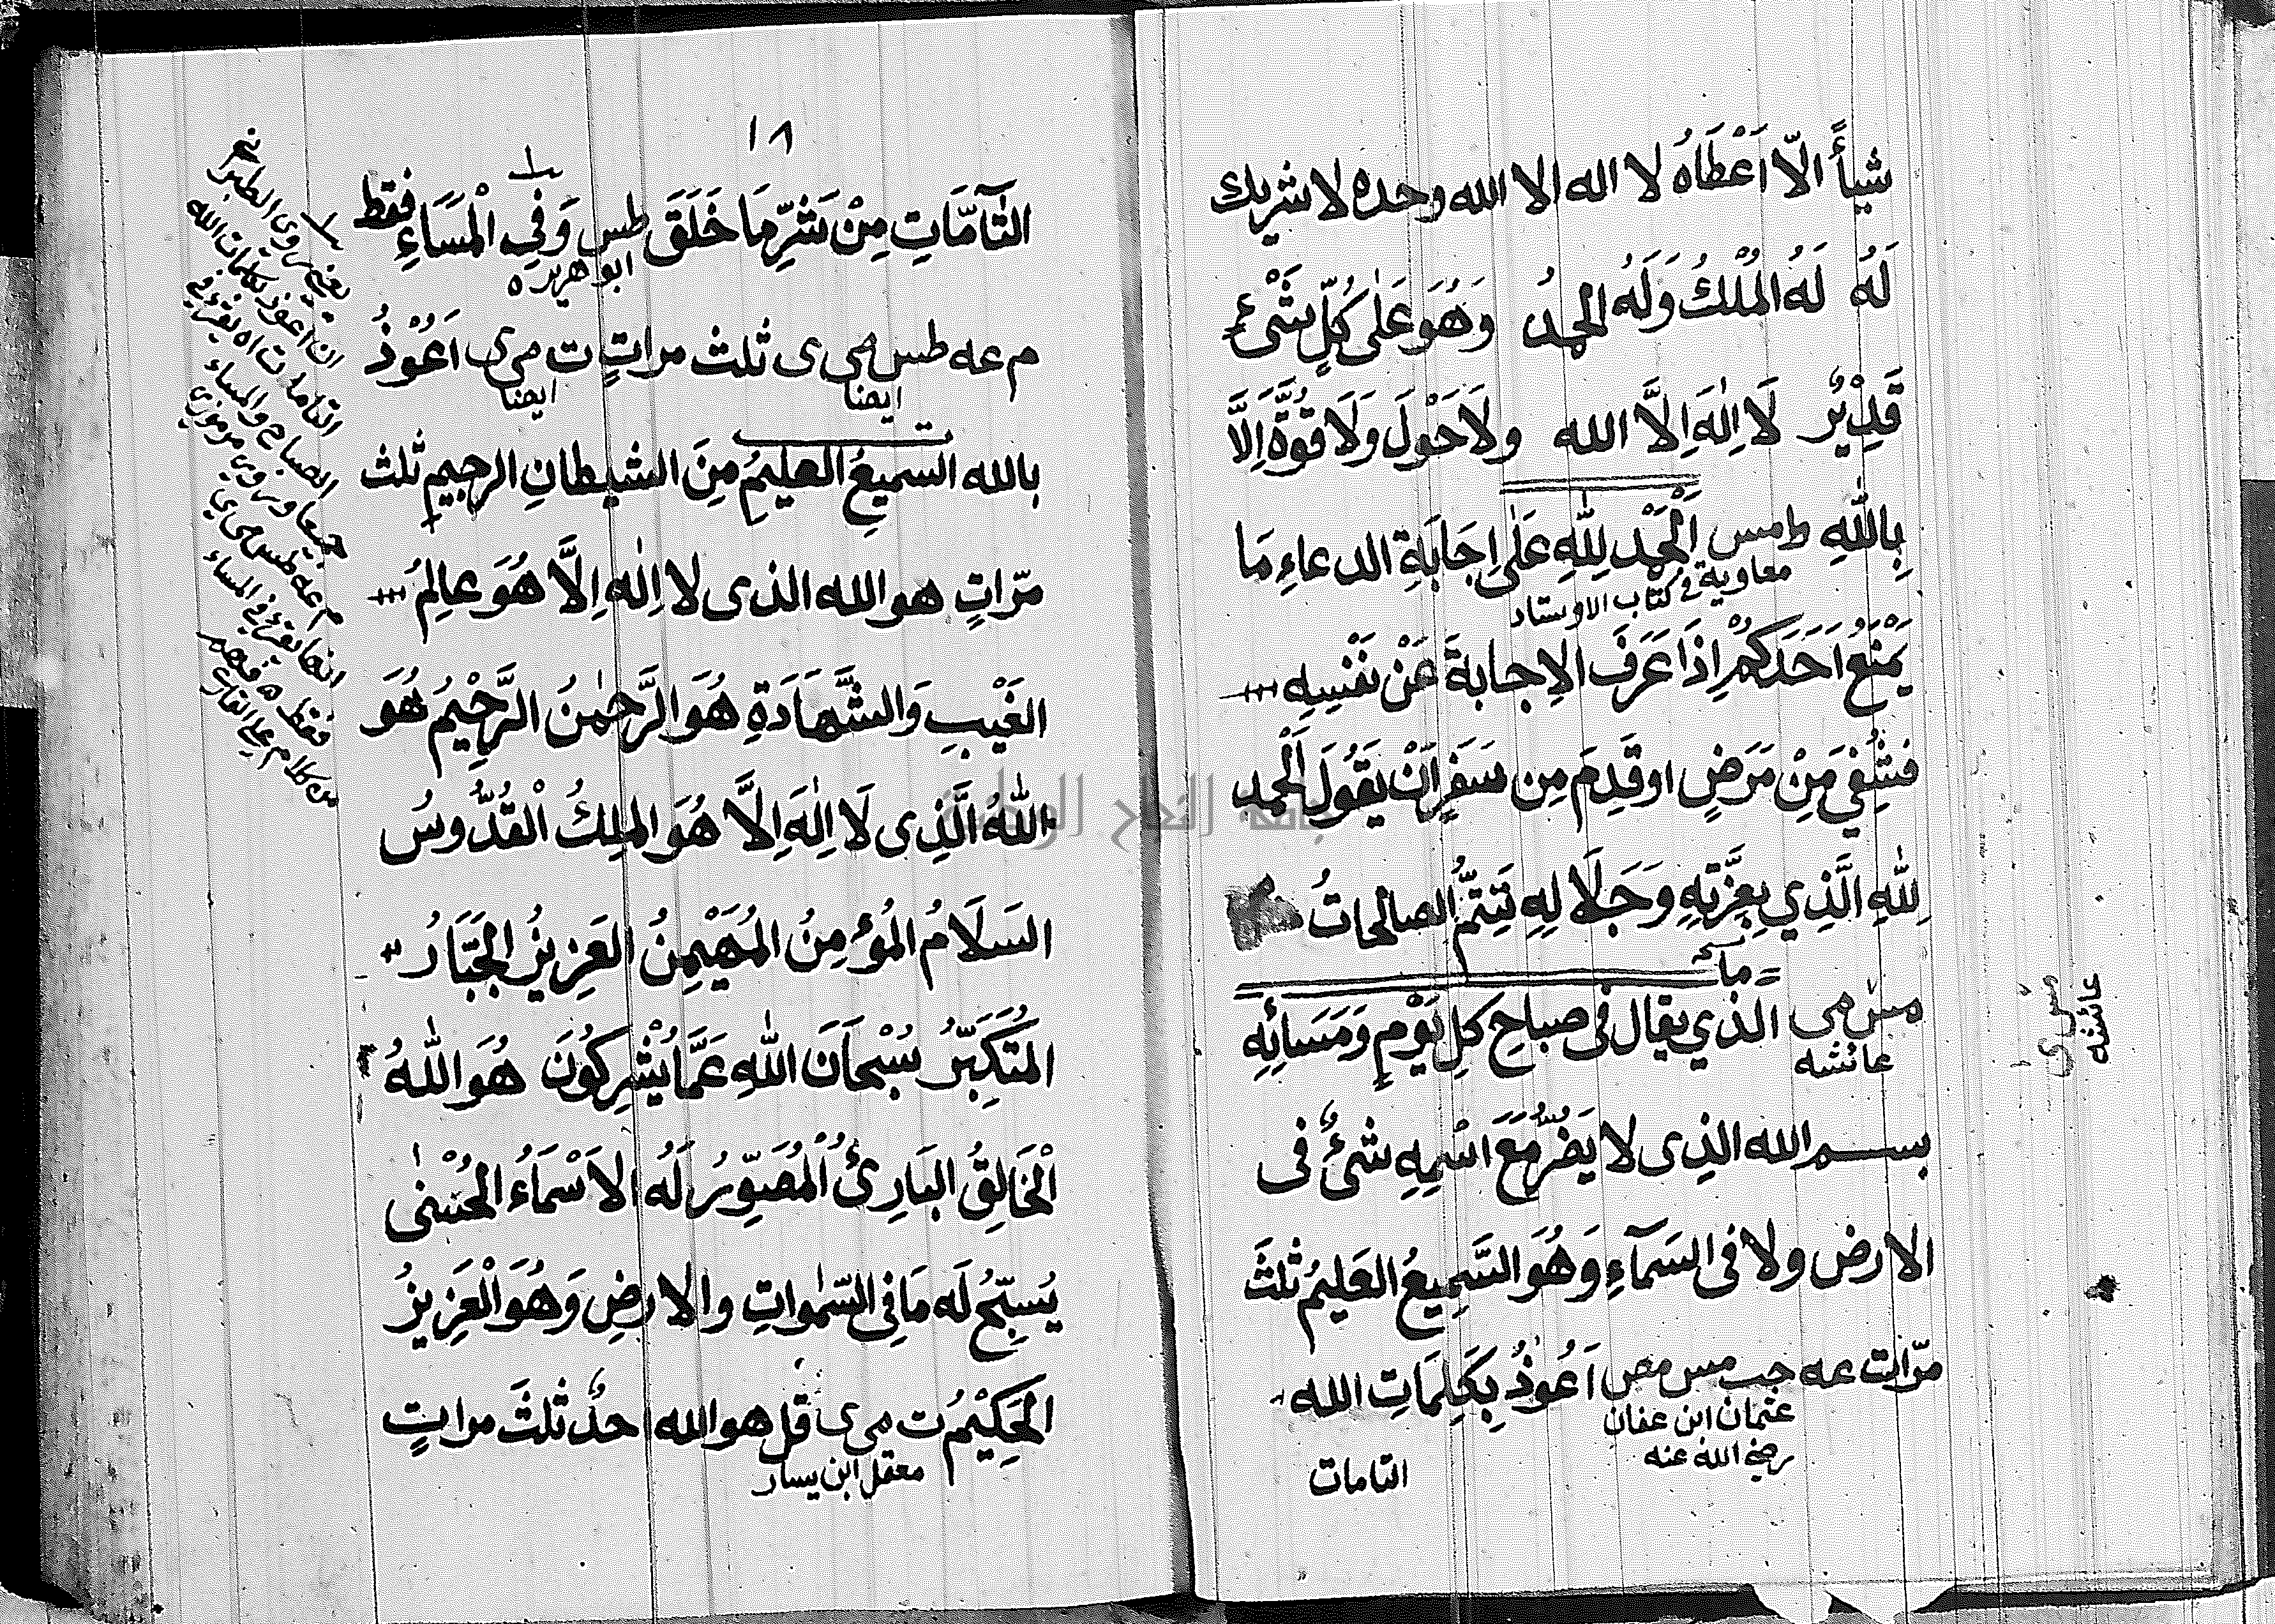 شيأً الّا اَعْطَاهُ لا اله الا الله وحده لا شريك
لَهُ لَهُ المُلْكُ وَلَهُ الحمدُ وَهُوَ عَلٰى كُلِّ شَىْءٍ
قَدِيْرٌ لَا اِلٰهَ اِلَّا الله ولَا حَوْلَ وَلَا قُوَّةَ اِلَّا
بِاللّٰهِ طمس اَلْحَمْد لِلّٰهِ عَلٰى اِجَابَةِ الدعاءِ مَا
معاوية في كتاب الاوستاد
يَمْنَعُ اَحَدَكُمْ اِذَا عَرَفَ الاِجابةَ عَنْ نَفْسِهِ
فشُفِيَ مِنْ مَرَضٍ او قَدِمَ مِن سَفَرٍ اَنْ يَقُولَ اَلْحمد
لِلّٰهِ الَّذِي بِعِزَّتِهِ وَجَلَالِهِ تَتِمُّ الصالحاتُ
مس مى الَّذي يقال فى صباحِ كلِ يَوْمٍ وَمَسَائِهِ
عائشه
بسم الله الذِى لا يَضُرُّ مَعَ اسْمِهِ شئٌ فى
الارض ولا فى السَمَآءِ وَهُوَ السَّمِيعُ العَليمُ ثلثَ
مرّات عه حب مس مص اَعُوذُ بِكَلِمَاتِ الله
عثمان ابن عفان
رضي الله عنه
التامات
مس ى
عائشه
١٨
التَّآمَّاتِ مِنْ شَرِّ مَا خَلَقَ طس وَفِي الْمَسَاءِ فقط
ابو هريره
م عه طس مى ى ثلث مراتٍ ت مى ى اَعُوْذُ
ايضا ايضا
بالله السميعُ العليمُ مِنَ الشيطانِ الرجيمِ ثلث
مرّاتٍ هو الله الذى لا اِلٰه اِلَّا هُوَ عالِمُ
الغَيْبِ وَالشَّهَادَةِ هُوَ الرَّحمٰنُ الرَّحِيْمُ هُوَ
اللّٰهُ الَّذِى لَا اِلٰهَ اِلَّا هُوَ الملِكُ الْقُدُّوسُ
السَلَامُ المُؤمِنُ المُهَيْمِنُ العَزِيزُ الجَبَّارُ
المُتَكَبِّرُ سُبْحَانَ اللّٰهِ عَمَّا يُشْرِكُونَ هُوَ اللّٰهُ
الْخَالِقُ البَارِئُ الْمُصَوِّرُ لَهُ الاَسْمَاءُ الحُسْنٰى
يُسَبِّحُ لَه مَا فِى السَّمٰواتِ والارضِ وَهُوَ الْعَزِيزُ
الحَكِيْمُ ت مى ى قل هو الله احدٌ ثلثَ مراتٍ
معقل ابن يسار
يعني روى الطبراني
ان اعوذ بكلمات الله
التامات اه يقرئ في
الصباح والمساء
جميعا وروى مرموزي
م عه طس مى ى
انها يقرئ في المساء
فقط فهم
من كلام علي القاري
جامعة النجاح الوطنية